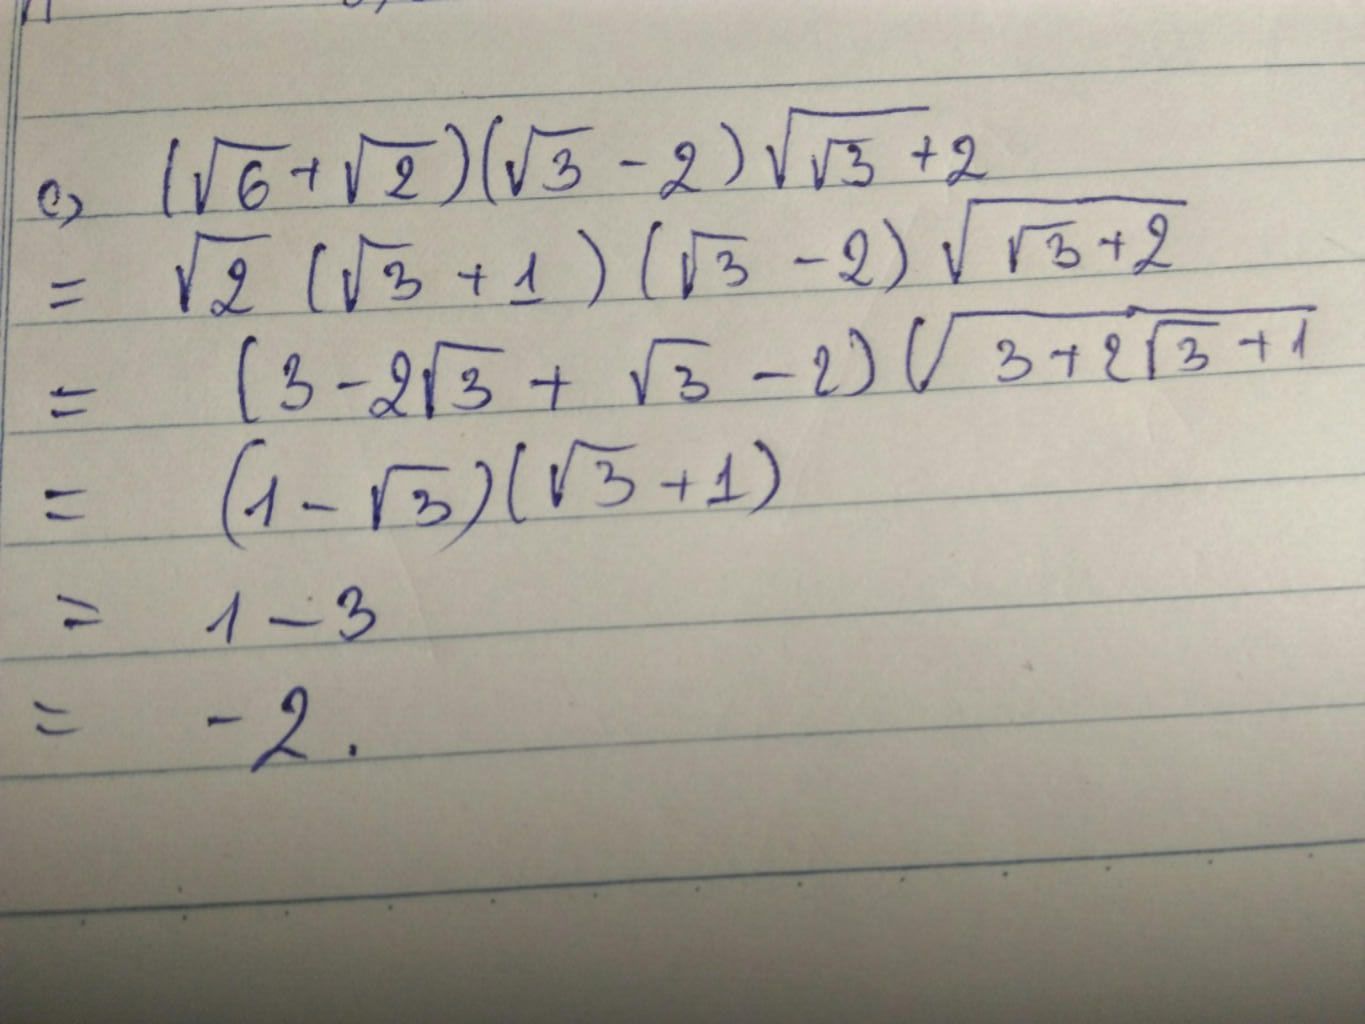 c) (√6 + √2)(√3 - 2)√(√3 + 2)
= √2 (√3 + 1) (√3 - 2) √(√3 + 2)
= (3 - 2√3 + √3 - 2)(√(3 + 2√3 + 1)
= (1 - √3)(√3 + 1)
= 1 - 3
= - 2.